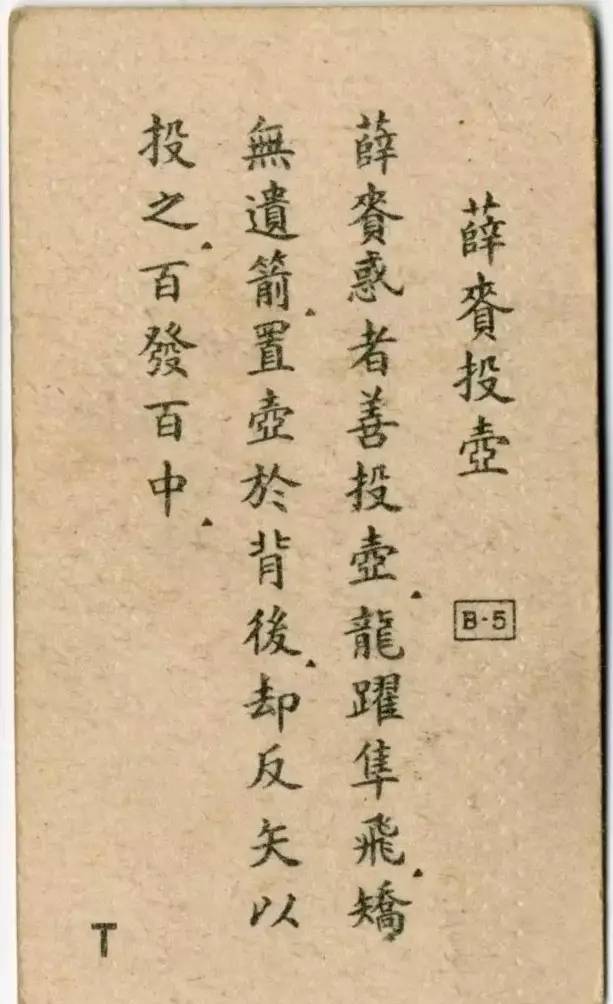 薛賫投壺
B-5
薛賫惑者善投壺▲龍躍隼飛▲矯
無遺箭▲置壺於背後▲却反矢以
投之▲百發百中▲
T